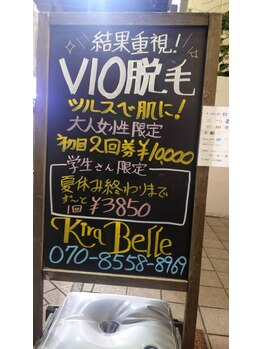 結果重視!
VIO脱毛
ツルスベ肌に!
大人女性限定
初回2回券¥10,000
学生さん限定
夏休み終わりまで
ず〜と1回¥3850
Kira Belle
070-8558-8969